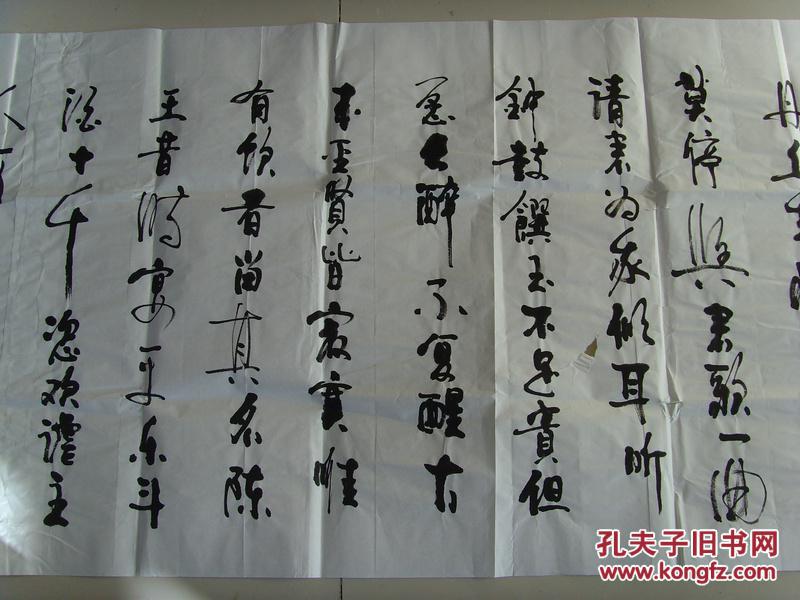 丹丘生
莫停與君歌一曲
请君为我倾耳听
钟鼓饌玉不足貴但
愿长醉不复醒古
来圣賢皆寂寞唯
有饮者留其名陈
王昔时宴平乐斗
酒十千恣欢谑主
孔夫子旧书网
www.kongfz.com